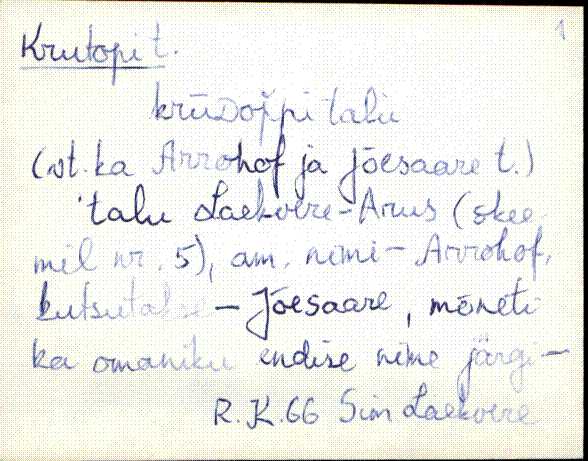 1
Krutopi t.
krūDop̌pi talu
(vt. ka Arrohof ja Jõesaare t.)
'talu Laekvere-Arus (skee-
mil nr. 5), am. nimi - Arrohof,
kutsutakse - Jõesaare, mõneti
ka omaniku endise nime järgi -
R.K.66 Sim Laekvere